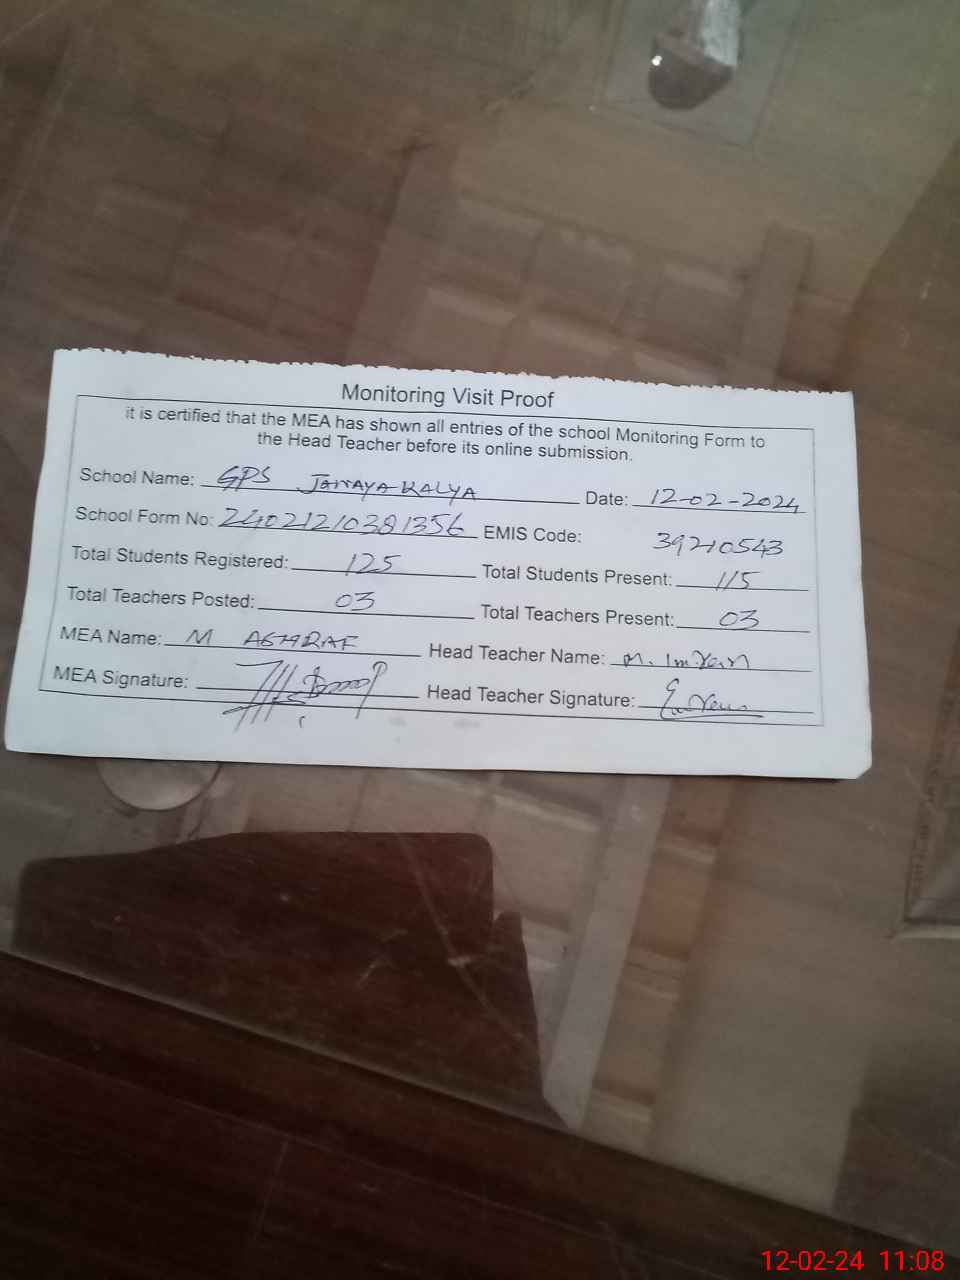 Monitoring Visit Proof
it is certified that the MEA has shown all entries of the school Monitoring Form to
the Head Teacher before its online submission.
School Name: GPS KALYA Date: 12-02-2024
School Form No: 24021210381356 EMIS Code: 39210543
Total Students Registered: 125 Total Students Present: 115
Total Teachers Posted: 03 Total Teachers Present: 03
MEA Name: M ASHRAF Head Teacher Name: M. Imran
MEA Signature: Head Teacher Signature:
12-02-24 11:08